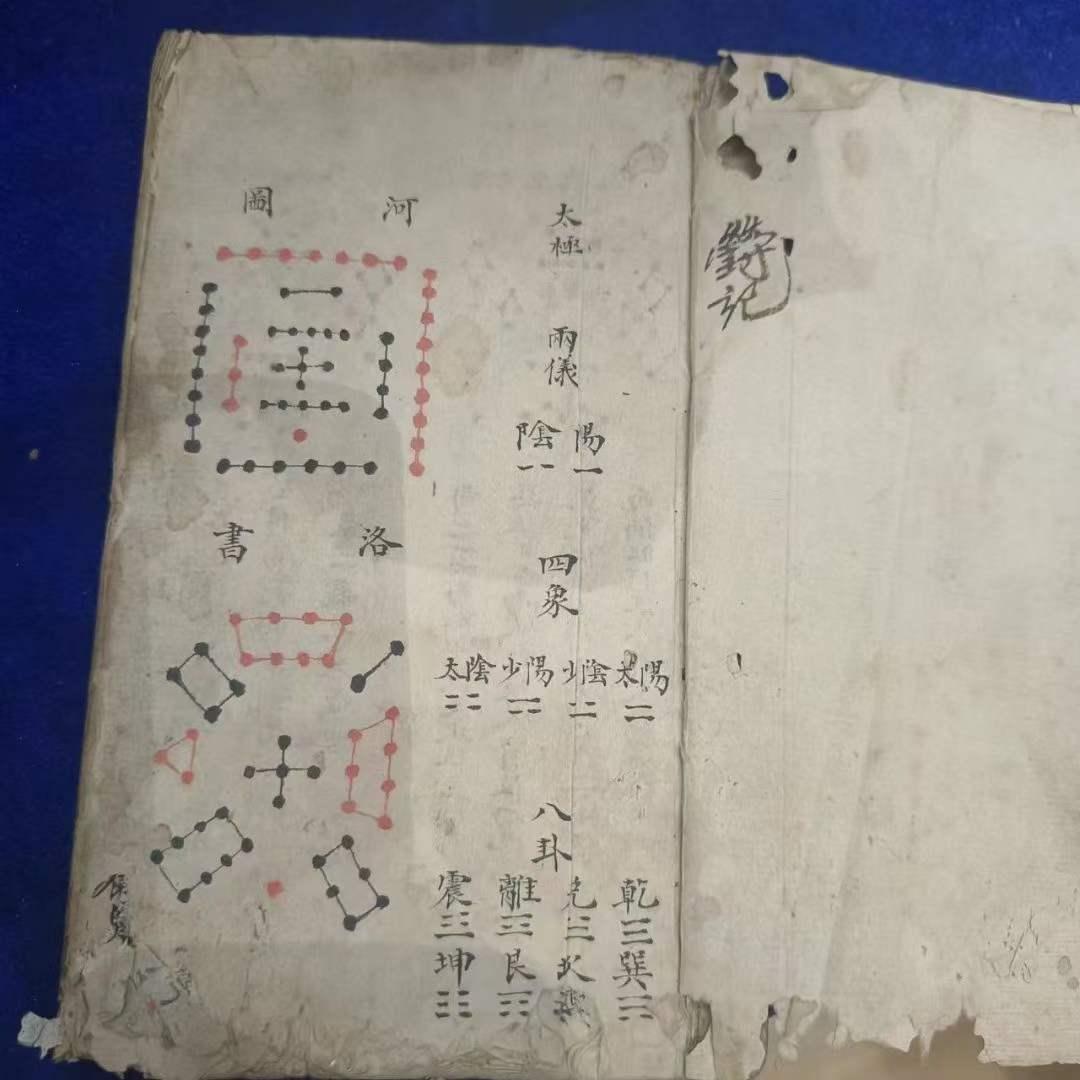 太極
兩儀
陽 陰
四象
太陽 少陰 少陽 太陰
八卦
乾 兌 離 震
巽 坎 艮 坤
河圖
洛書
記